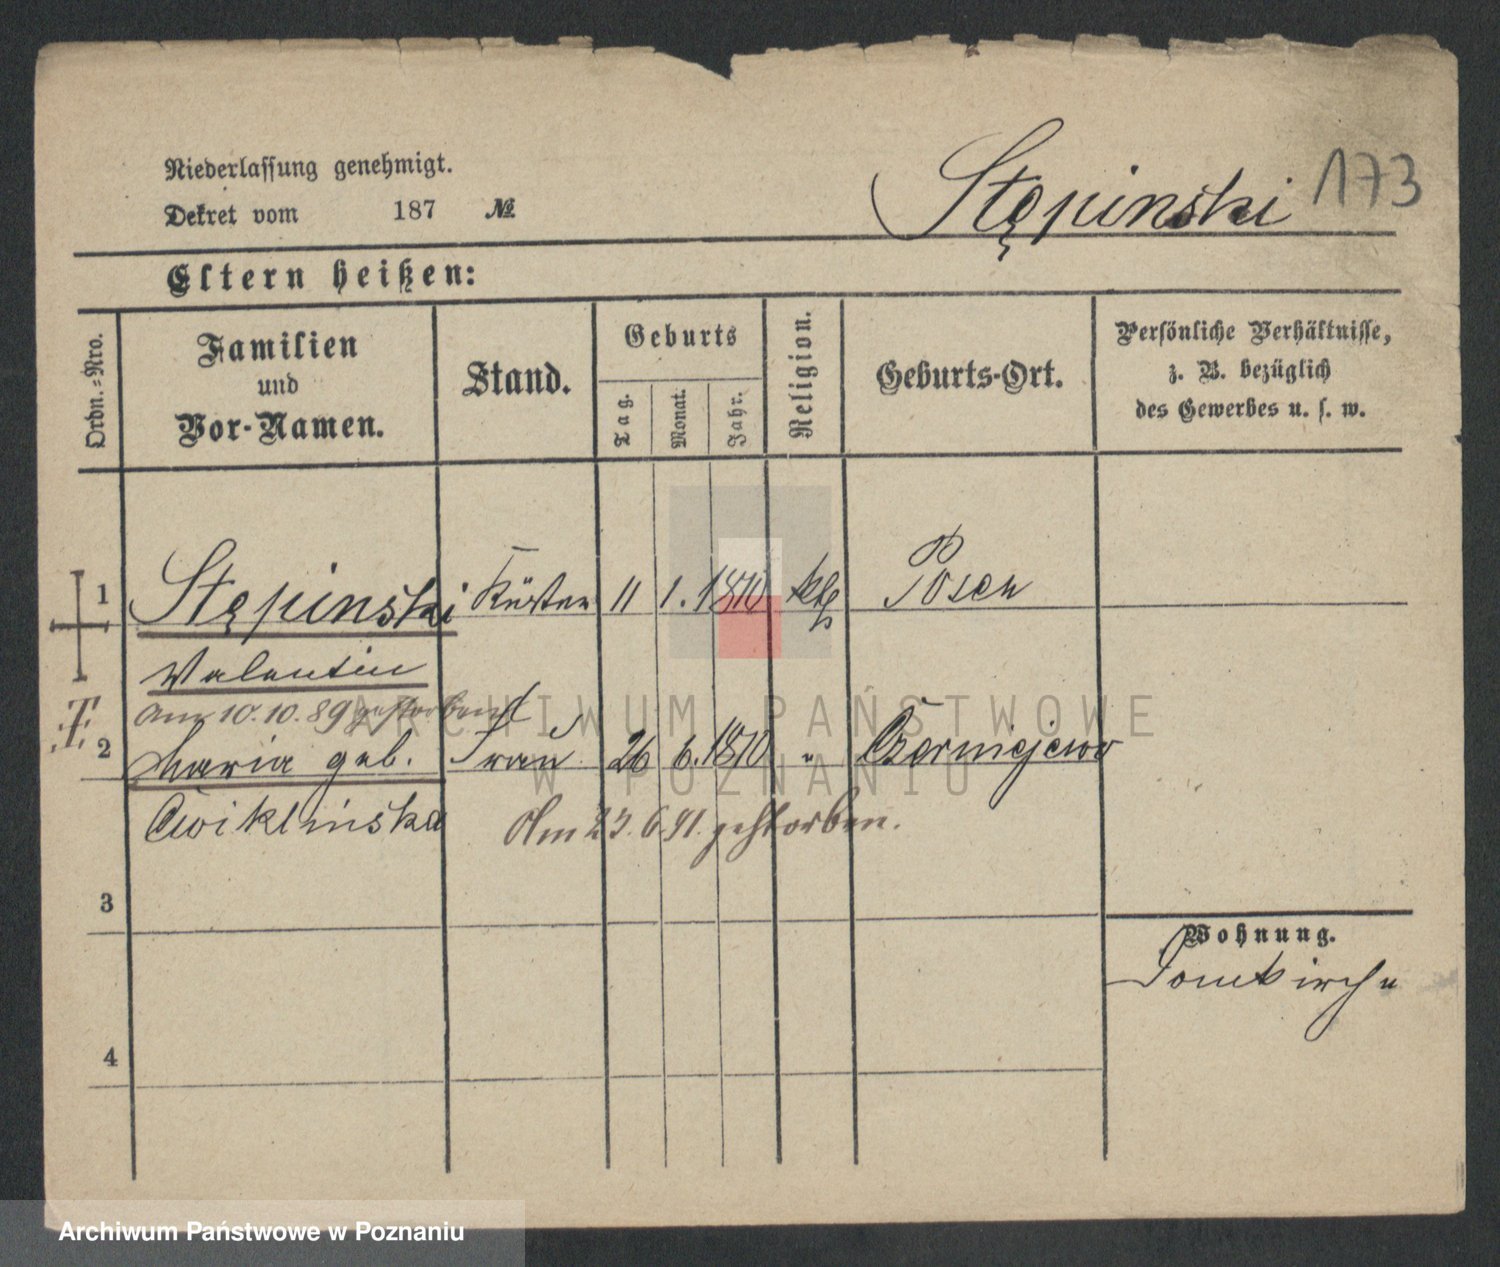 173
Niederlassung genehmigt.
Dekret vom 187 №
Stępinski
Eltern heißen:
Ordn.-Nro.
Familien
und
Vor-Namen.
Stand.
Geburts
Tag.
Monat.
Jahr.
Religion.
Geburts-Ort.
Persönliche Verhältnisse,
z. B. bezüglich
des Gewerbes u. s. w.
1 Stępinski Küster 11 1. 1810 kth Posen
Valentin
am 10.10.89 gestorben
2 Maria geb. Frau 26 6. 1810 " Czerniejewo
Cwiklinska
Am 23.6.91. gestorben.
3
Wohnung.
Domkirche
4
ARCHIWUM PAŃSTWOWE
W POZNANIU
Archiwum Państwowe w Poznaniu